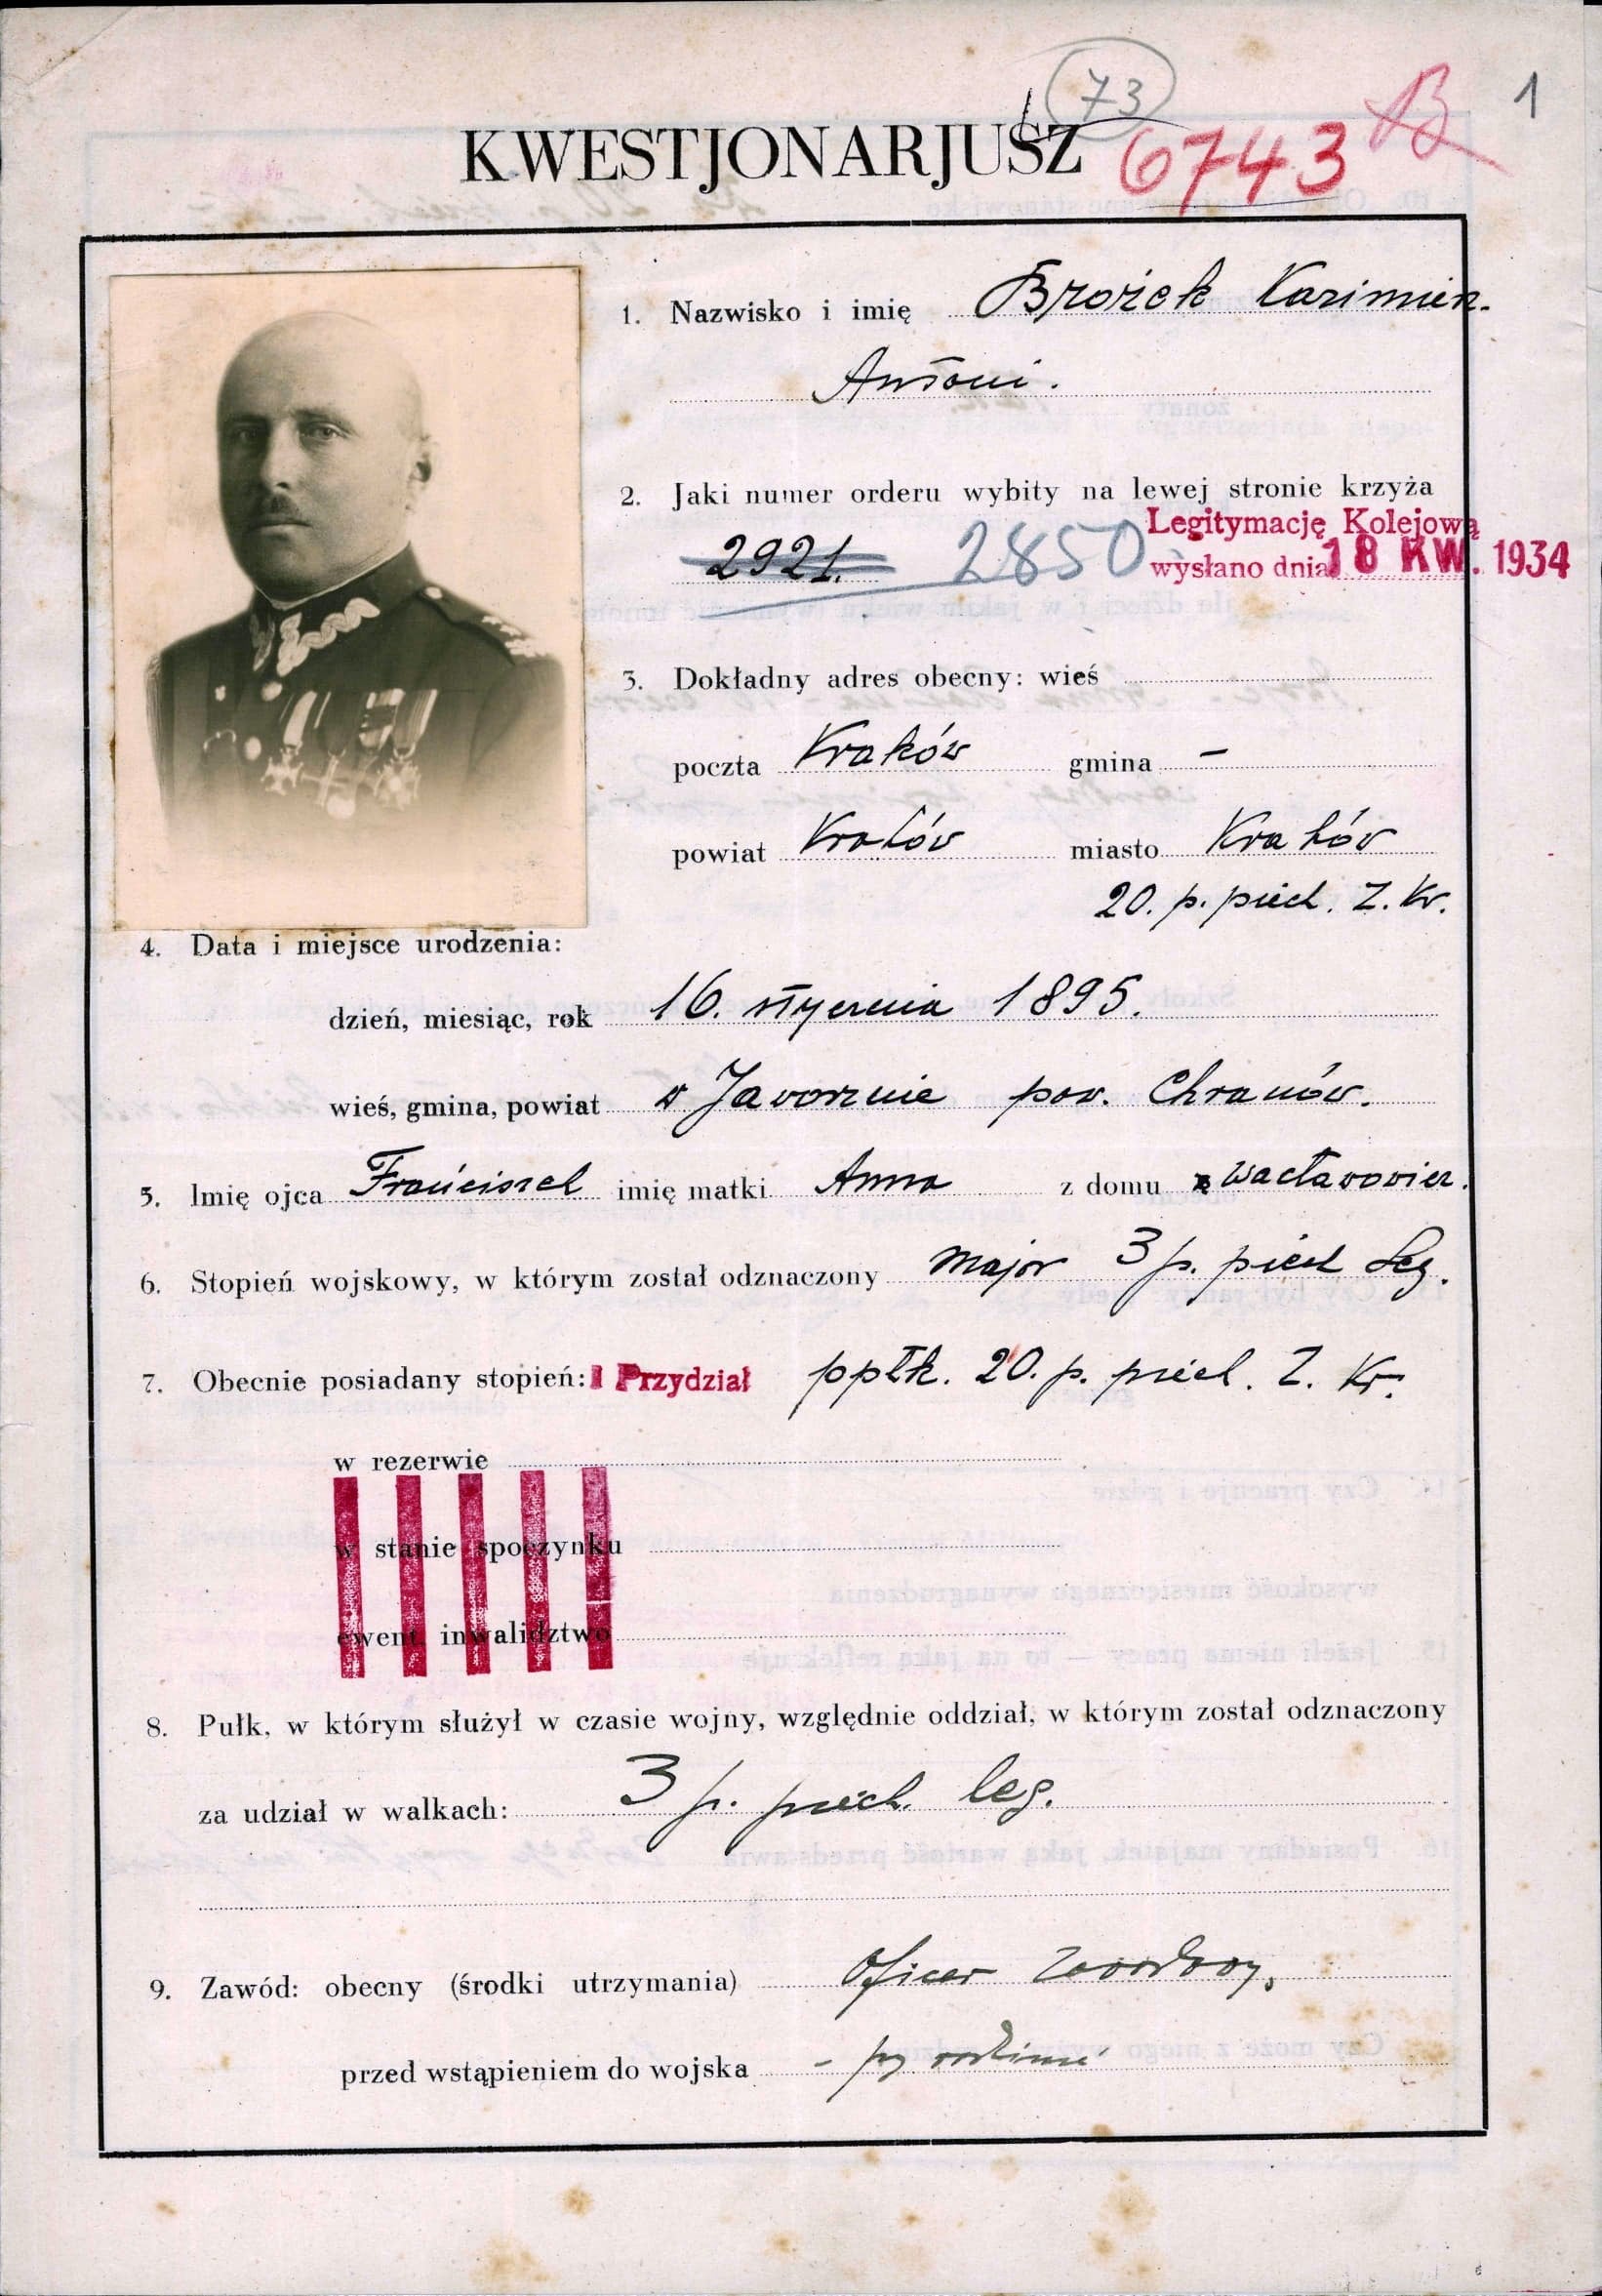 73
KWESTJONARJUSZ 6743 B 1
1. Nazwisko i imię Brożek Kazimierz.
Antoni.
2. Jaki numer orderu wybity na lewej stronie krzyża
Legitymację Kolejową
2921. 2850 wysłano dnia 18 KW. 1934
3. Dokładny adres obecny: wieś
poczta Kraków gmina –
powiat Kraków miasto Kraków
20. p. piech. Z. Kr.
4. Data i miejsce urodzenia:
dzień, miesiąc, rok 16. stycznia 1895.
wieś, gmina, powiat w Jaworznie pow. Chrzanów.
5. Imię ojca Franciszek imię matki Anna z domu z Wacławowicz.
6. Stopień wojskowy, w którym został odznaczony major 3 p. piech Leg.
7. Obecnie posiadany stopień: I Przydział ppłk. 20. p. piech. Z. Kr.
w rezerwie
w stanie spoczynku
ewent. inwalidztwo
8. Pułk, w którym służył w czasie wojny, względnie oddział, w którym został odznaczony
za udział w walkach: 3 p. piech. leg.
9. Zawód: obecny (środki utrzymania) Oficer zawodowy,
przed wstąpieniem do wojska – przy rodzinie